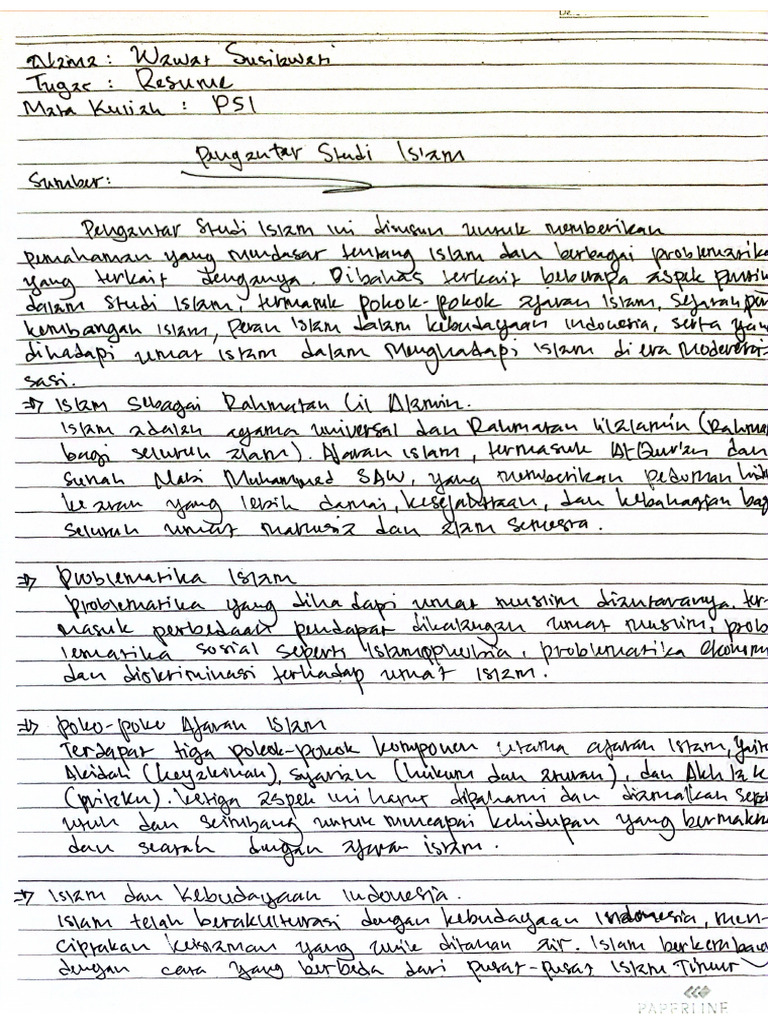 Nama : Wawat Susilawati
Tugas : Resume
Mata Kuliah : PSI
Pengantar Studi Islam
Sumber:
Pengantar Studi Islam ini disusun untuk memberikan
pemahaman yang mendasar tentang Islam dan berbagai problematika
yang terkait denganya. Dibahas terkait beberapa aspek
dalam Studi Islam, termasuk pokok-pokok ajaran Islam, Sejarah
kembangan Islam, Peran Islam dalam kebudayaan indonesia, serta yang
dihadapi umat Islam dalam Menghadapi Islam di era Moderni
sasi.
=> Islam Sebagai Rahmatan Lil Alamin.
Islam adalah agama universal dan Rahmatan lil'alamin (Rahmat
bagi seluruh alam). Ajaran islam, termasuk Al-Qur'an dan
Sunah Nabi Muhammed SAW, yang memberikan pedoman
ke arah yang lebih damai, kesejahtraan, dan kebahagian bag
seluruh umat manusia dan alam semesta.
=> Problematika Islam
problematika yang dihadapi umat muslim diantaranya. ter-
masuk perbedaan pendapat dikalangan umat muslim, prob
lematika sosial seperti Islamophobia, problematika ekonomi
dan diskriminasi terhadap umat Islam.
=> poko-poko Ajaran Islam
Terdapat tiga pokok-pokok komponen utama ajaran Islam, yaitu
Akidah (keyakinan), syariah (hukum dan aturan), dan Akhlak
(prilaku). ketiga aspek ini harus dipahami dan diamalkan
utuh dan seimbang untuk mencapai kehidupan yang bermakna
dan searah dengan ajaran islam.
=> Islam dan Kebudayaan Indonesia.
Islam telah berakulturasi dengan kebudayaan Indonesia, men-
ciptakan keislaman yang unik ditanah air. Islam berkembang
dengan cara yang berbeda dari pusat-pusat Islam Timur
PAPERLINE